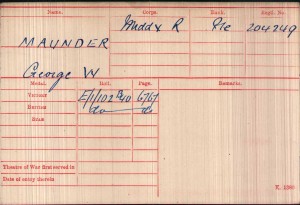 Name. Corps. Rank. Regtl. No.
MAUNDER Middx R Pte 204249
George W
Medal. Roll. Page. Remarks.
VICTORY E/1/102 B40 6767
BRITISH do do
STAR
Theatre of War first served in
Date of entry therein
K. 1380